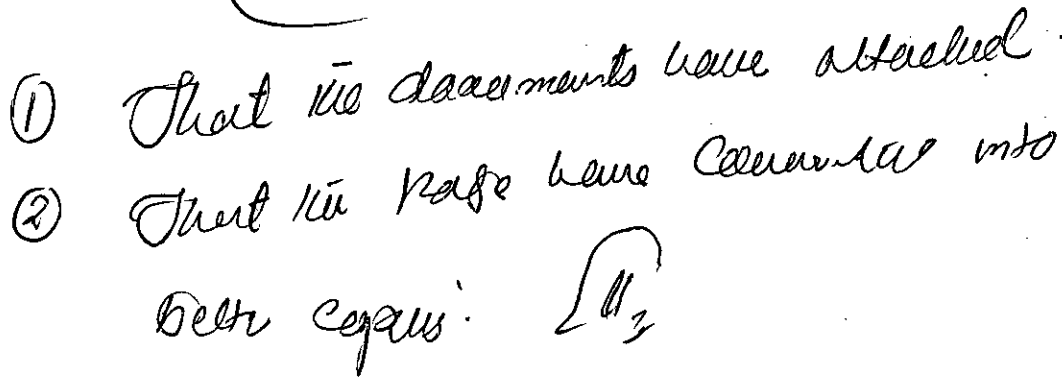 ① That the documents have attached.
② That the page have converted into
better copies.